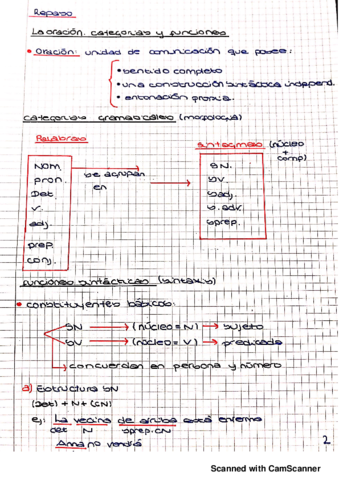 Repaso
La oración. categorías y funciones
• Oración: unidad de comunicación que posee:
• sentido completo
• una construcción sintáctica independ.
• entonación propia.
categorías gramaticales (morfología)
Palabras
sintagmas (núcleo + comp)
NOM.
pron.
Det.
v.
adj.
prep.
conj.
se agrupan en
SN.
sv.
sadj.
s.adv.
sprep.
Funciones sintácticas (sintaxis)
• constituyentes básicos:
SN → (núcleo = N) → sujeto
SV → (núcleo = V) → predicado
→ concuerdan en persona y número
a) Estructura SN
(Det) + N + (CN)
ej: La vecina de arriba está enferma
det N sprep.CN
Ama no vendrá
2
Scanned with CamScanner